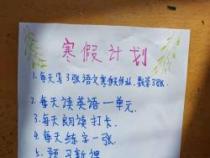 寒假计划
1.每天写3张语文寒假作业,数学3张.
2.每天读英语一单元.
3.每天朗读打卡.
4.每天练字一张.
5.预习新课